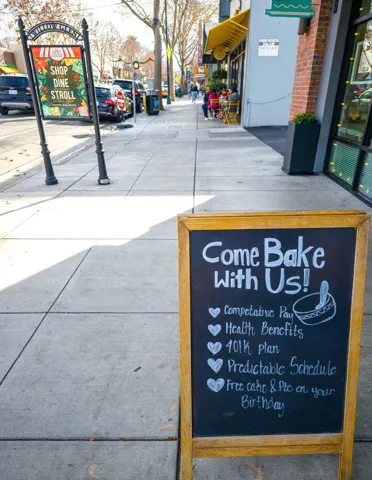 SHOP
DINE
STROLL
Come Bake
With Us!
Competative Pay
Health Benefits
401k plan
Predictable Schedule
Free cake & Pie on your
Birthday